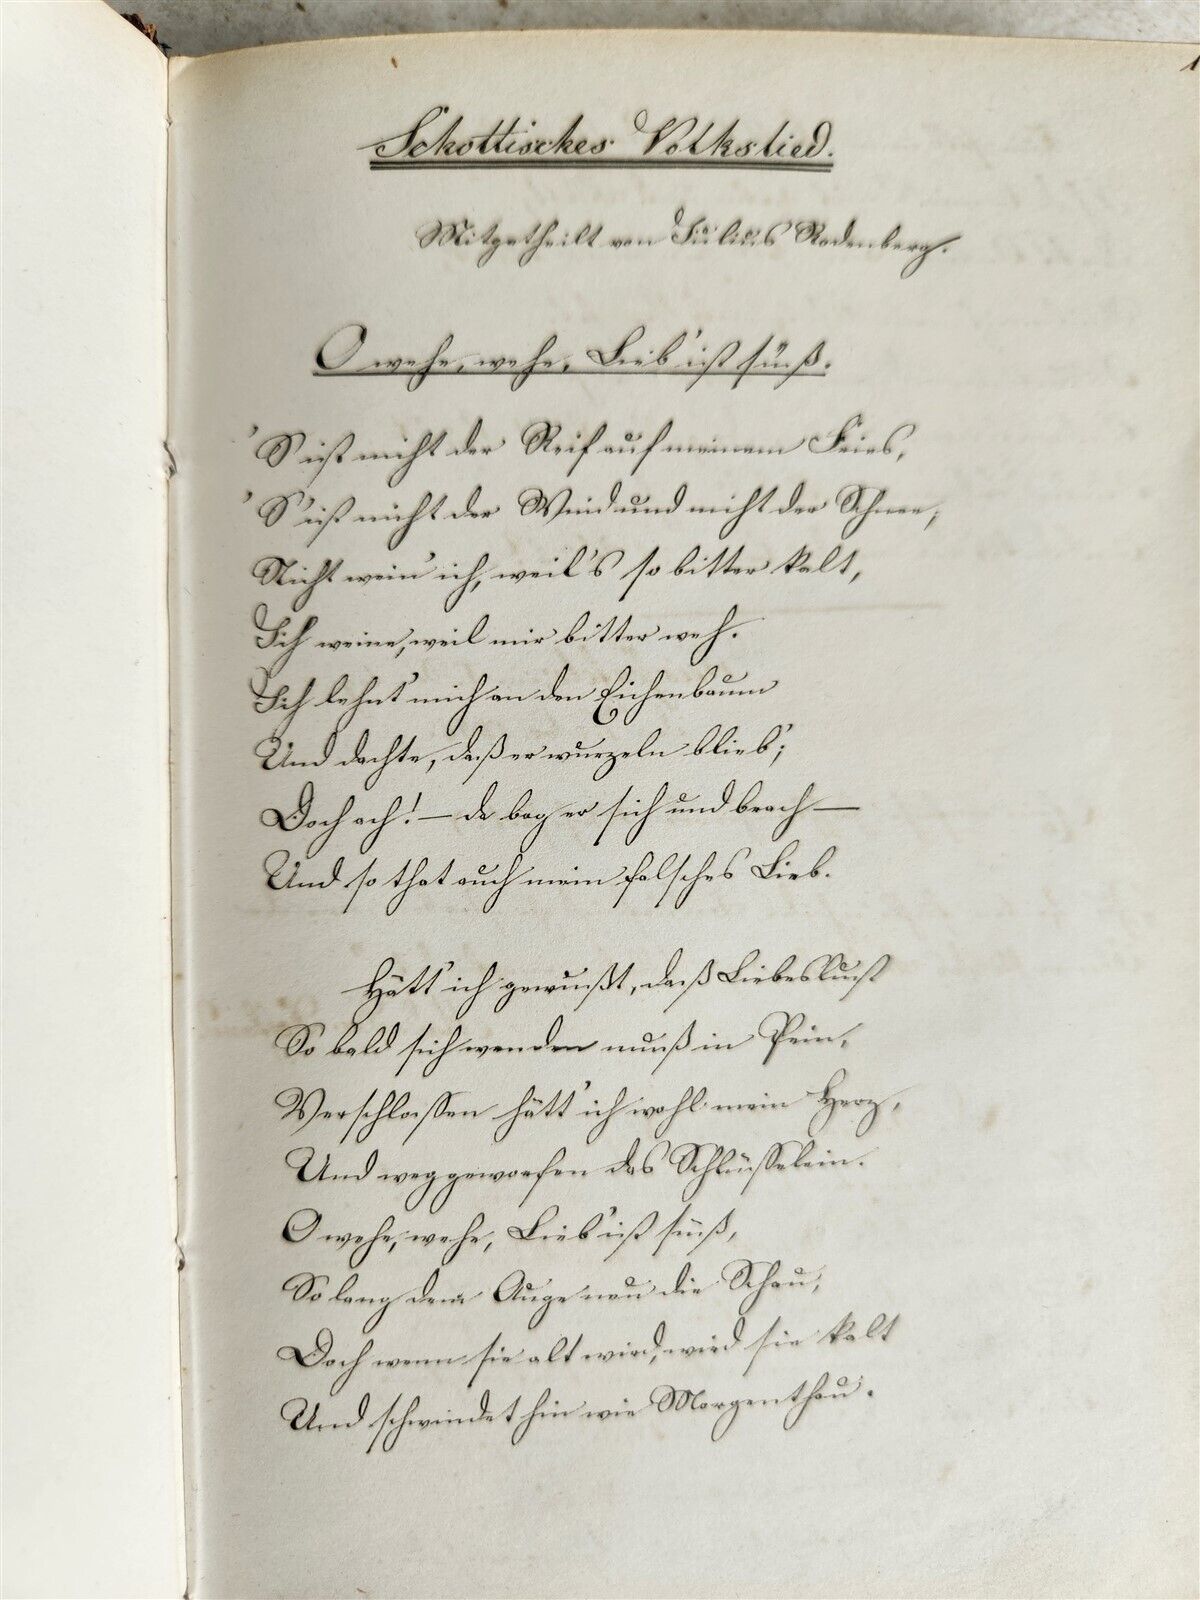 Schottisches Volkslied.
Mitgetheilt von Julius Rodenberg.
O wehe, wehe, Lieb' ist süß.
'S ist nicht der Reif auf meinem Kleid,
'S ist nicht der Wind und nicht der Schnee;
Nicht wein' ich, weil's so bitter kalt,
Ich weine, weil mir bitter weh.
Ich lehnt' mich an den Eichenbaum
Und dachte, daß er wurzeln blieb';
Doch ach! — da bog er sich und brach —
Und so that auch mein falsches Lieb.
Hätt' ich gewußt, daß Liebeslust
So bald sich wenden muß in Pein,
Verschlossen hätt' ich wohl mein Herz,
Und weggeworfen das Schlüsselein.
O wehe, wehe, Lieb' ist süß,
So lang dem Auge neu die Schau;
Doch wenn sie alt wird, wird sie kalt
Und schwindet hin wie Morgenthau.